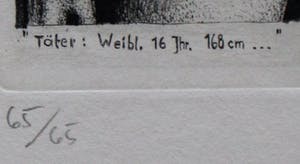 "Töter: Weibl. 16 Jhr. 168 cm ..."
65/65